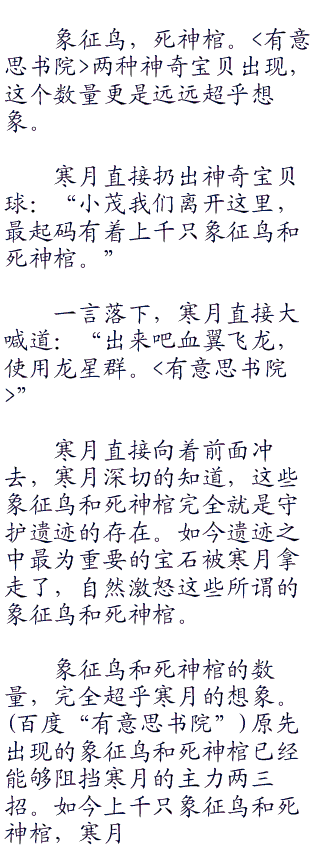 象征鸟，死神棺。<有意
思书院>两种神奇宝贝出现，
这个数量更是远远超乎想
象。
寒月直接扔出神奇宝贝
球：“小茂我们离开这里，
最起码有着上千只象征鸟和
死神棺。”
一言落下，寒月直接大
喊道：“出来吧血翼飞龙，
使用龙星群。<有意思书院
>”
寒月直接向着前面冲
去，寒月深切的知道，这些
象征鸟和死神棺完全就是守
护遗迹的存在。如今遗迹之
中最为重要的宝石被寒月拿
走了，自然激怒这些所谓的
象征鸟和死神棺。
象征鸟和死神棺的数
量，完全超乎寒月的想象。
(百度“有意思书院”)原先
出现的象征鸟和死神棺已经
能够阻挡寒月的主力两三
招。如今上千只象征鸟和死
神棺，寒月